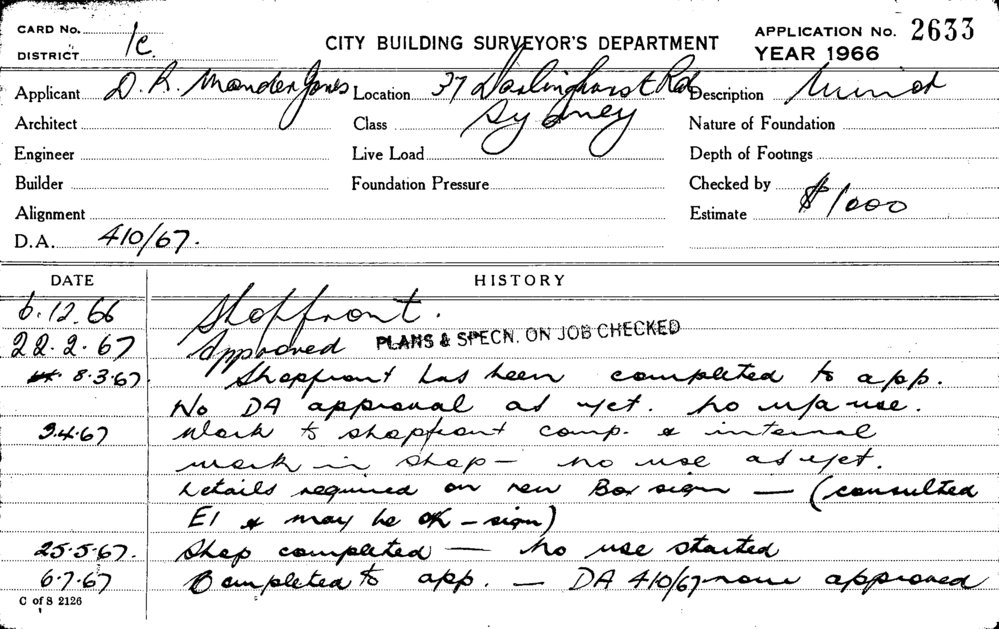 CARD No.
DISTRICT 1c
CITY BUILDING SURVEYOR'S DEPARTMENT
APPLICATION No. 2633
YEAR 1966
Applicant D. R. Mander Jones Location 37 Darlinghurst Rd Description Minor
Architect Class Sydney Nature of Foundation
Engineer Live Load Depth of Footings
Builder Foundation Pressure Checked by
Alignment Estimate $1000
D.A. 410/67.
DATE HISTORY
6.12.66 Shopfront.
22.2.67 Approved PLANS & SPECN. ON JOB CHECKED
8.3.67. Shopfront has been completed to app.
No DA approval as yet. No u/a use.
3.4.67 Work to shopfront comp. & internal
work in shop — no use as yet.
Details required on new Box sign — (consulted
EI & may be OK – sign)
25.5.67. Shop completed — No use started
6.7.67 Completed to app. — DA 410/67 now approved
C of S 2126